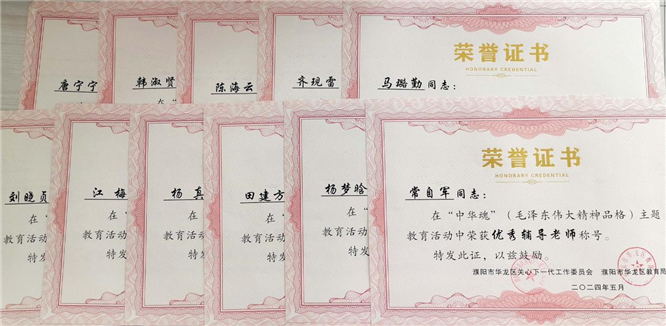 唐宁宁
韩淑贤
陈海云
齐现雷
荣誉证书
HONORARY CREDENTIAL
马璐勤同志：
刘晓员
在
教育活动
特发
江梅
在“
教育活动
特发
杨真
在
教育活动
特发
田建方
在“
教育活动
特发
杨梦晗
在“
教育活动
特发
荣誉证书
HONORARY CREDENTIAL
常自军同志：
在“中华魂”（毛泽东伟大精神品格）主题
教育活动中荣获优秀辅导老师称号。
特发此证，以兹鼓励。
濮阳市华龙区关心下一代工作委员会 濮阳市华龙区教育局
二〇二四年五月